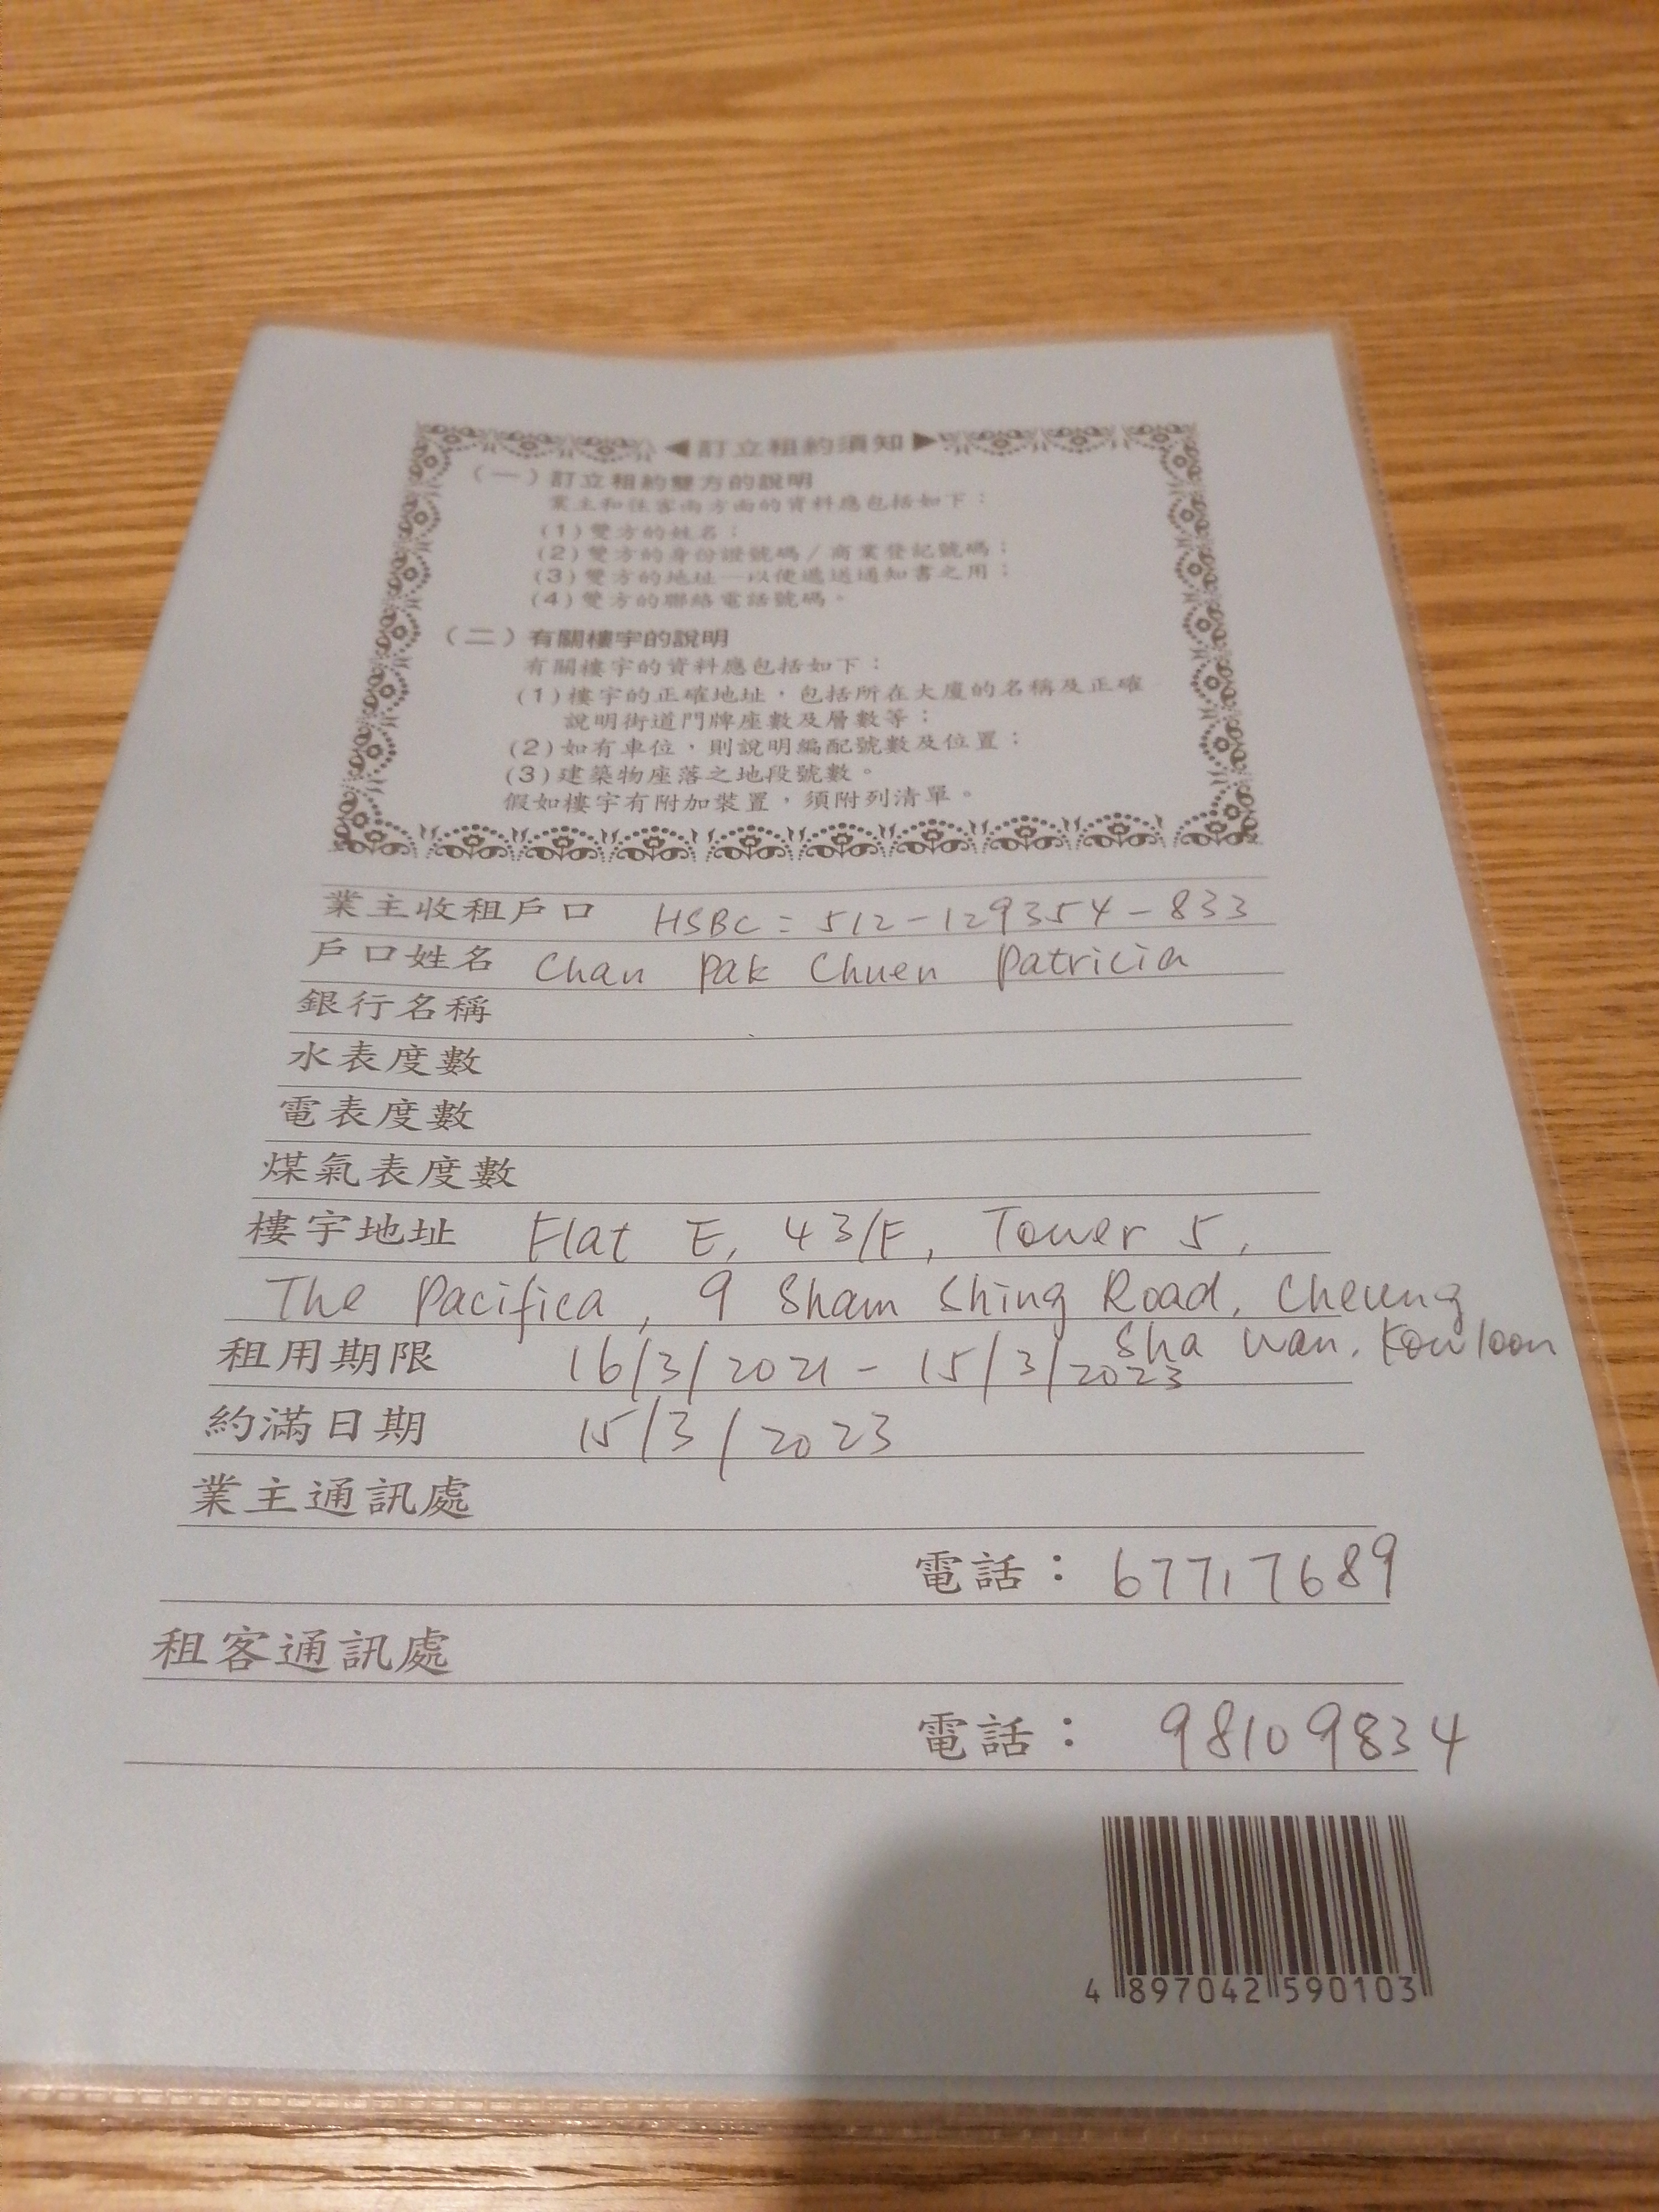 ◀訂立租約須知▶
(一)訂立租約雙方的說明
業主和住客兩方面的資料應包括如下：
(1)雙方的姓名；
(2)雙方的身份證號碼／商業登記號碼；
(3)雙方的地址—以便遞送通知書之用；
(4)雙方的聯絡電話號碼。
(二)有關樓宇的說明
有關樓宇的資料應包括如下：
(1)樓宇的正確地址，包括所在大廈的名稱及正確
說明街道門牌座數及層數等；
(2)如有車位，則說明編配號數及位置；
(3)建築物座落之地段號數。
假如樓宇有附加裝置，須附列清單。
業主收租戶口 HSBC = 512-129354-833
戶口姓名 Chan Pak Chuen Patricia
銀行名稱
水表度數
電表度數
煤氣表度數
樓宇地址 Flat E, 43/F, Tower 5,
The Pacifica, 9 Sham Shing Road, Cheung
Sha Wan, Kowloon
租用期限 16/3/2021 - 15/3/2023
約滿日期 15/3/2023
業主通訊處
電話： 67717689
租客通訊處
電話： 98109834
4 897042 590103